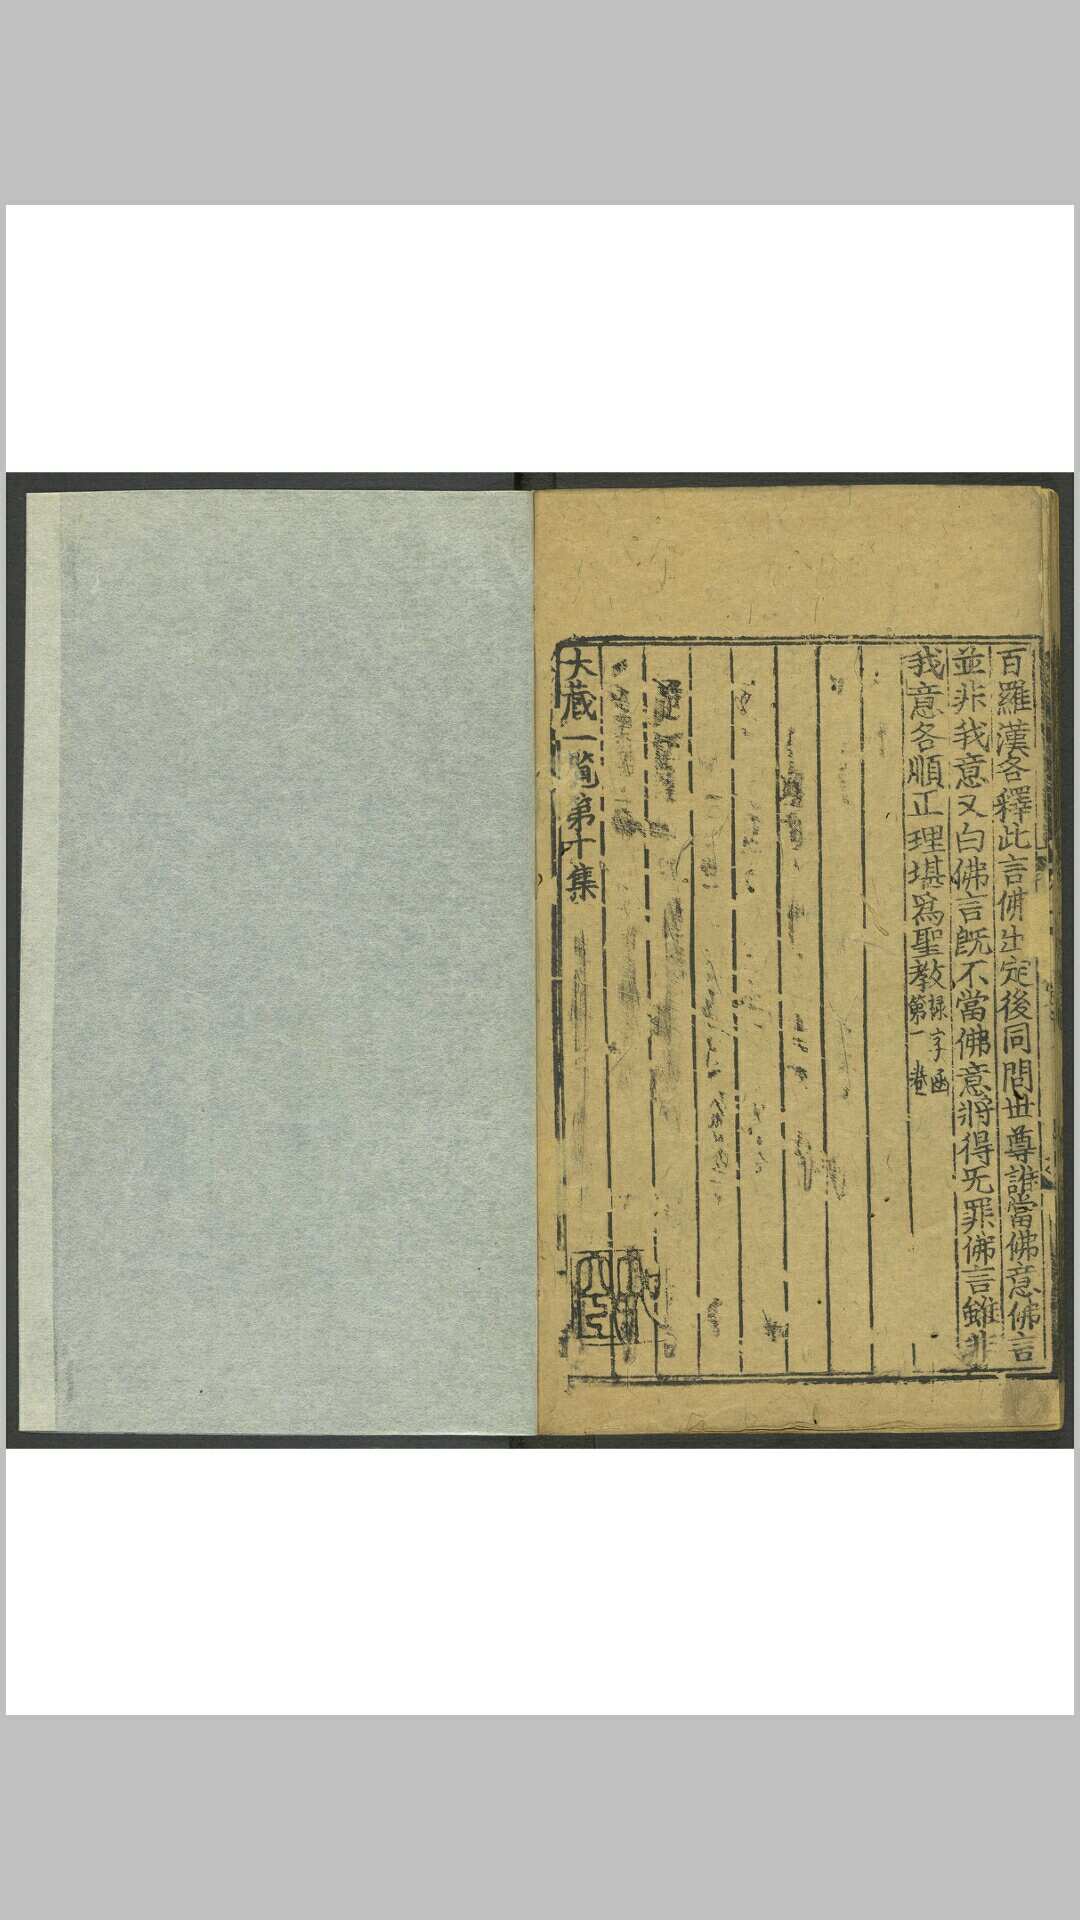 百羅漢各釋此言佛出定後同問世尊誰當佛意佛言
並非我意又白佛言旣不當佛意將得无罪佛言雖非
我意各順正理堪爲聖教
祿字函
第一卷
大藏一覧第十集